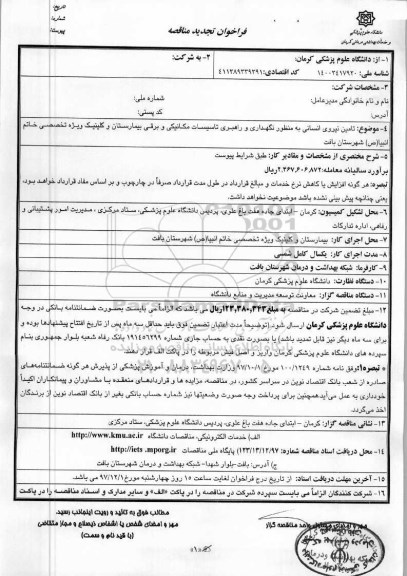 تاریخ:
شماره:
پیوست:
دانشگاه علوم پزشکی
و خدمات بهداشتی درمانی کرمان
فراخوان تجدید مناقصه
۱- از: دانشگاه علوم پزشکی کرمان: ۲- به شرکت:
شناسه ملی: ۱۴۰۰۲۴۱۷۹۲۰ کد اقتصادی: ۴۱۱۲۸۹۳۳۹۲۹۱
۳- مشخصات شرکت:
نام و نام خانوادگی مدیرعامل: شماره ملی:
آدرس: کد پستی:
۴- موضوع: تامین نیروی انسانی به منظور نگهداری و راهبری تاسیسات مکانیکی و برقی بیمارستان و کلینیک ویژه تخصصی خاتم
انبیا(ص) شهرستان بافت
۵- شرح مختصری از مشخصات و مقادیر کار: طبق شرایط پیوست
برآورد سالیانه معامله: ۲،۴۶۷،۶۰۶،۸۷۲ ریال
تبصره: هر گونه افزایش یا کاهش نرخ خدمات و مبالغ قرارداد در طول مدت قرارداد صرفاً در چارچوب و بر اساس مفاد قرارداد خواهد بود،
یعنی چنانچه پیش بینی نشده باشد موضوعیت نخواهد داشت.
۶- محل تشکیل کمیسیون: کرمان - ابتدای جاده هفت باغ علوی، پردیس دانشگاه علوم پزشکی، ستاد مرکزی، مدیریت امور پشتیبانی و
رفاهی، اداره تدارکات
۷- محل اجرای کار: بیمارستان و کلینیک ویژه تخصصی خاتم انبیا(ص) شهرستان بافت
۸- مدت اجرای کار: یکسال کامل شمسی
۹- کارفرما: شبکه بهداشت و درمان شهرستان بافت
۱۰- دستگاه نظارت: دانشگاه علوم پزشکی کرمان
۱۱- دستگاه مناقصه گزار: معاونت توسعه مدیریت و منابع دانشگاه
۱۲- مبلغ تضمین شرکت در مناقصه به مبلغ ۱۲۳،۳۸۰،۳۴۳ ریال می باشد که الزاماً می بایست بصورت ضمانتنامه بانکی در وجه
دانشگاه علوم پزشکی کرمان ارسال شود (توضیحاً مدت اعتبار تضمین فوق باید حداقل سه ماه پس از تاریخ افتتاح پیشنهادها بوده و
برای سه ماه دیگر نیز قابل تمدید باشد) یا بصورت نقدی به حساب جاری شماره ۱۹۱۴۵۶۲۹۹ بانک رفاه شعبه بلوار جمهوری بنام
سپرده های دانشگاه علوم پزشکی کرمان واریز و اصل فیش مربوطه را در پاکت الف قرار دهند.
* تبصره: برابر نامه شماره ۱۰۰/۱۲۴۹ مورخ ۹۷/۱۰/۵ وزارت بهداشت، درمان و آموزش پزشکی از پذیرش هر گونه ضمانتنامه‌های
صادره از شعب بانک اقتصاد نوین در سراسر کشور، در مناقصه، مزایده ها و قراردادهای منعقده با مشاوران و پیمانکاران اکیداً
خودداری به عمل می‌آید همچنین برای پرداخت وجه صورت وضعیتها نیز شماره حساب بانکی بغیر از بانک اقتصاد نوین از برندگان
اخذ می‌گردد.
۱۳- نشانی مناقصه گزار: کرمان - ابتدای جاده هفت باغ علوی، پردیس دانشگاه علوم پزشکی، ستاد مرکزی
الف) خدمات الکترونیکی، مناقصات دانشگاه http://www.kmu.ac.ir
۱۴- محل دریافت اسناد مناقصه شماره: (۱۳۳/۱۳/۱۲/۹۷) پایگاه ملی مناقصات http://iets.mporg.ir
ج) آدرس: بافت- بلوار شهدا- شبکه بهداشت و درمان شهرستان بافت
۱۵- آخرین مهلت دریافت اسناد: از تاریخ درج فراخوان لغایت ساعت ۱۵ روز چهارشنبه مورخ ۹۷/۱۲/۱ می باشد.
۱۶- شرکت کنندگان الزاماً می بایست سپرده شرکت در مناقصه را در پاکت «الف» و سایر مدارک و اسناد مناقصه را در پاکت
مطالب فوق به تائید و رویت اینجانب رسید.
مهر و امضای شخص یا اشخاص ذیصلاح و مجاز متقاضی
(با قید نام و سمت)